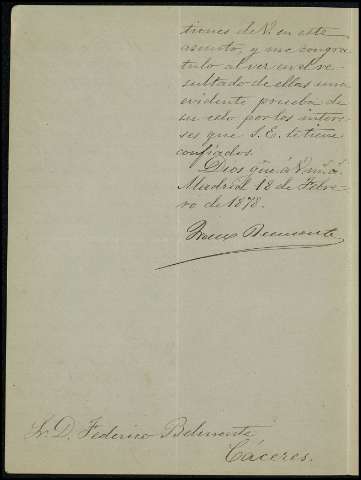 tiones de V. en este
asunto, y me congra
tulo al ver en el re
sultado de ellas una
evidente prueba de
su celo por los intere
ses que S. E. le tiene
confiados.
Dios gũe á V. m. a.
Madrid 18 de Febre
ro de 1878.
Sr. D. Federico Belmonte
Cáceres.